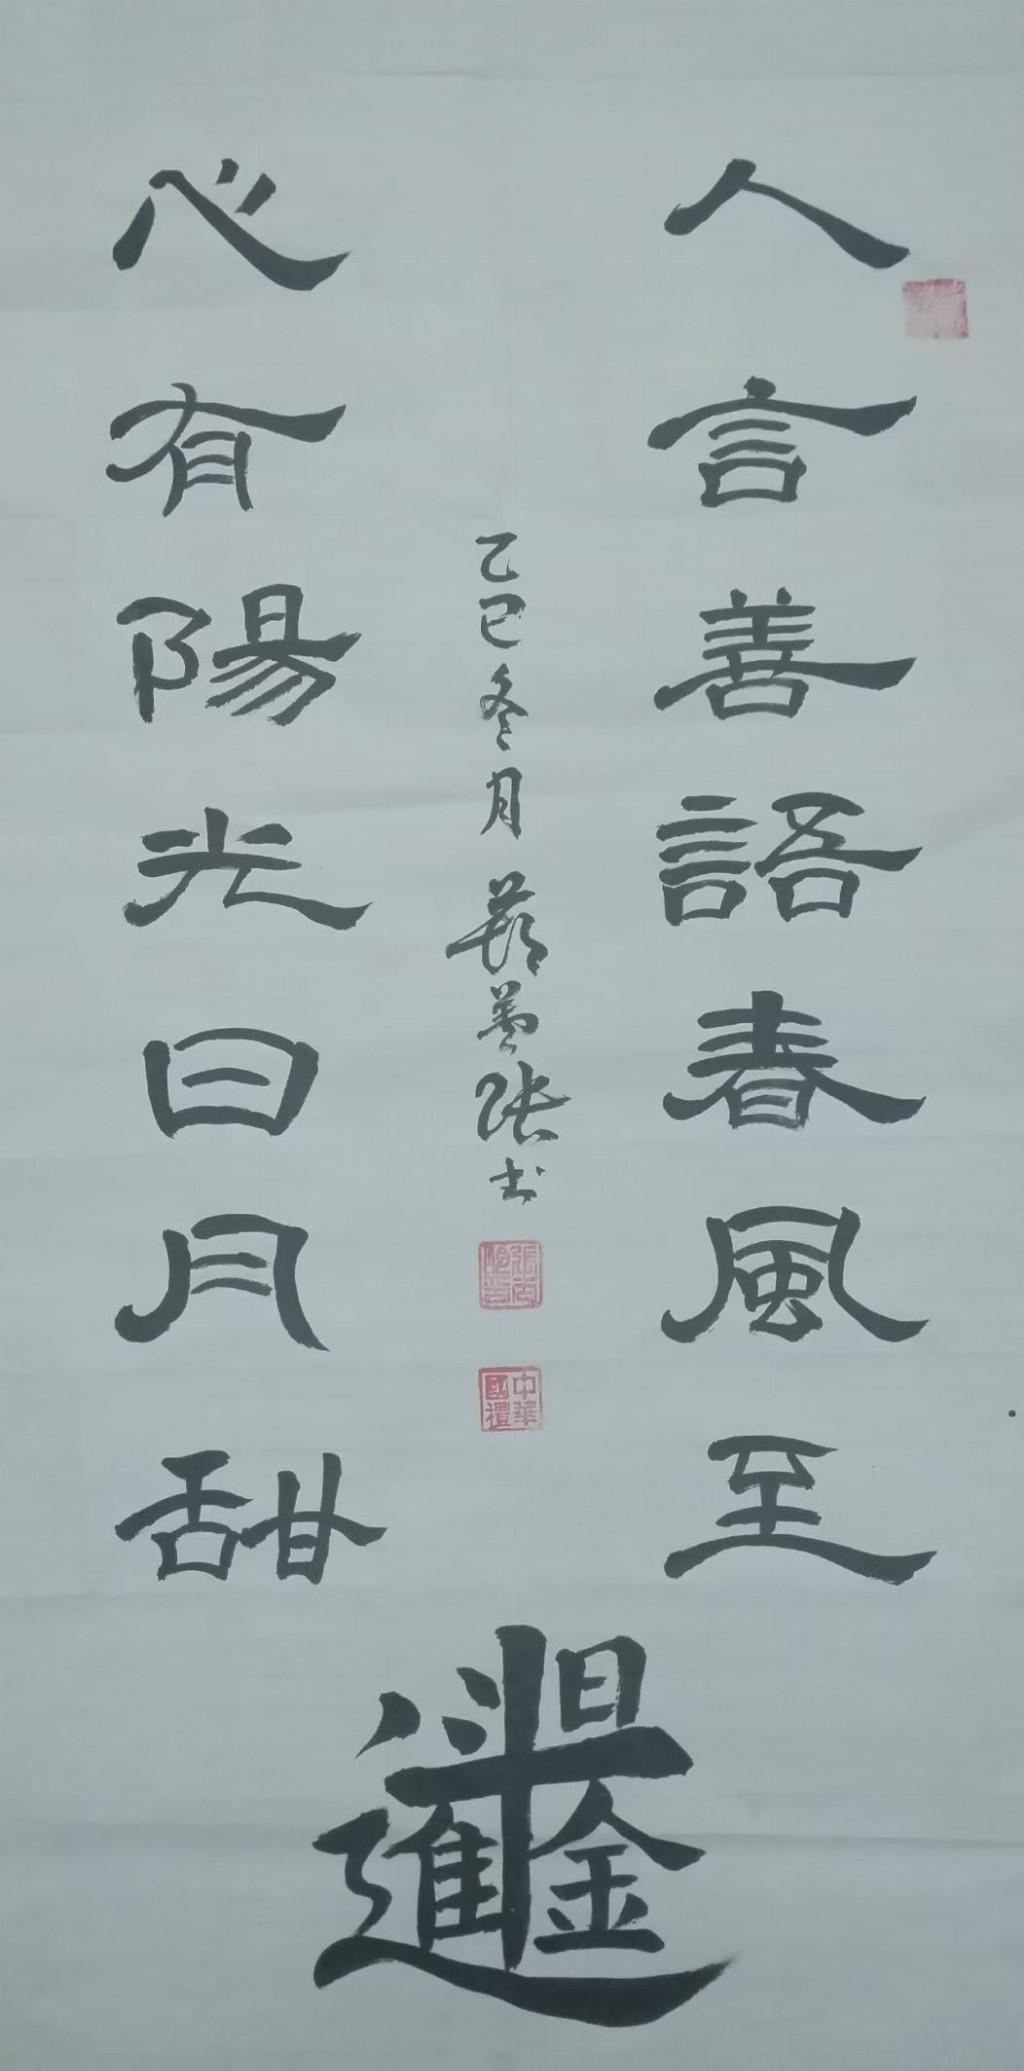 人言善語春風至
心有陽光日月甜
乙巳冬月
書
中華國禮
日進斗金